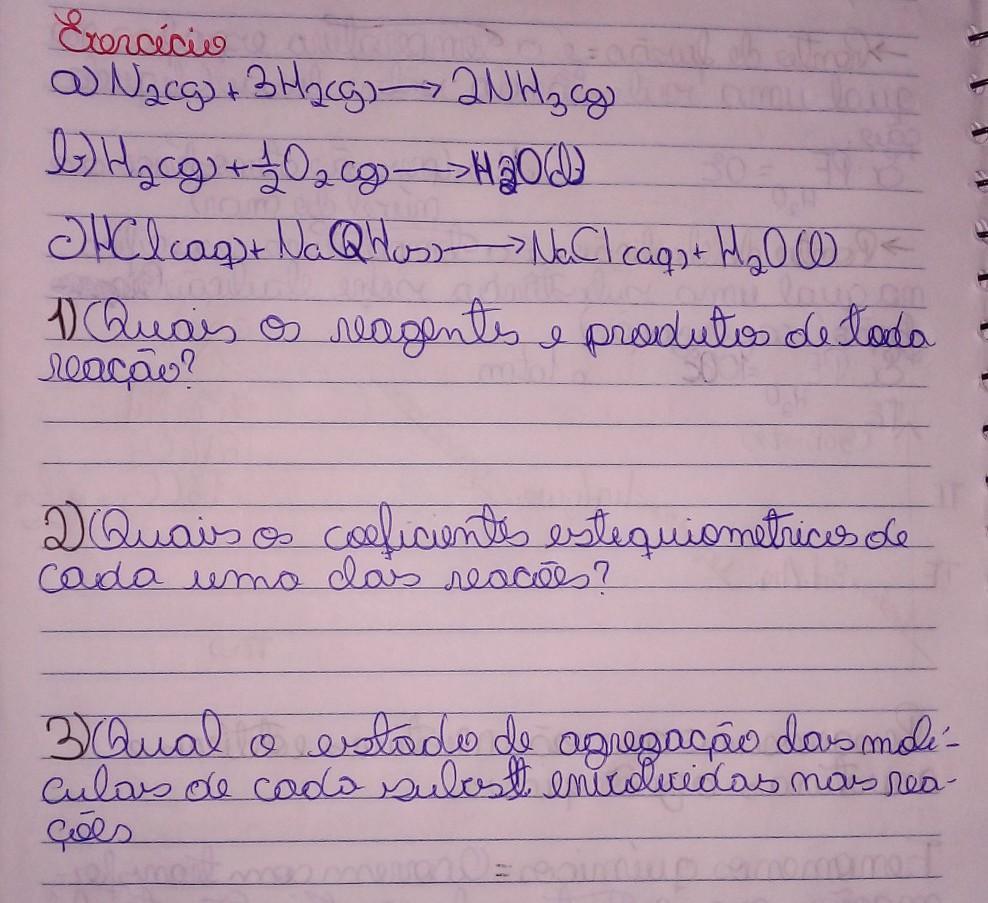 Exercício
a) N₂(g) + 3H₂(g) → 2NH₃(g)
b) H₂(g) + ½O₂(g) → H₂O(l)
c) HCl(aq) + NaOH(s) → NaCl(aq) + H₂O(l)
1) Quais os reagentes e produtos de toda
reação?
2) Quais os coeficientes estequiometricos de
cada uma das reações?
3) Qual o estado de agregação das molé-
culas de cada subst envolvidas nas rea-
ções
=